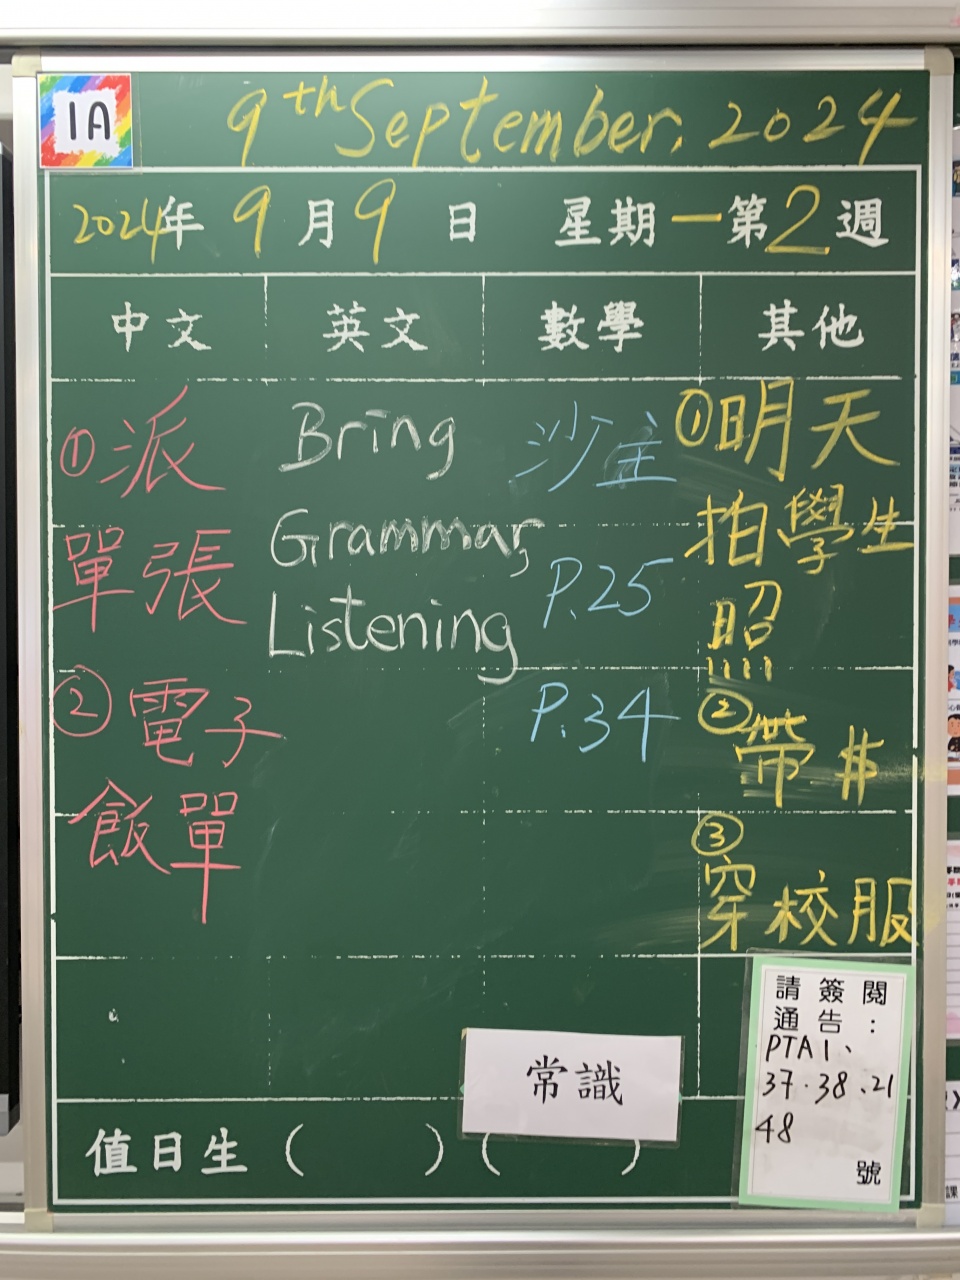 1A
9th September, 2024
2024年9月9日 星期一第2週
中文
英文
數學
其他
①派
單張
②電子
飯單
Bring
Grammar,
Listening
P.25
P.34
①明天
拍學生
照
②帶
③
穿校服
常識
請簽閱
通告：
PTA 1、
37.38、21
48
號
值日生（ ）（ ）